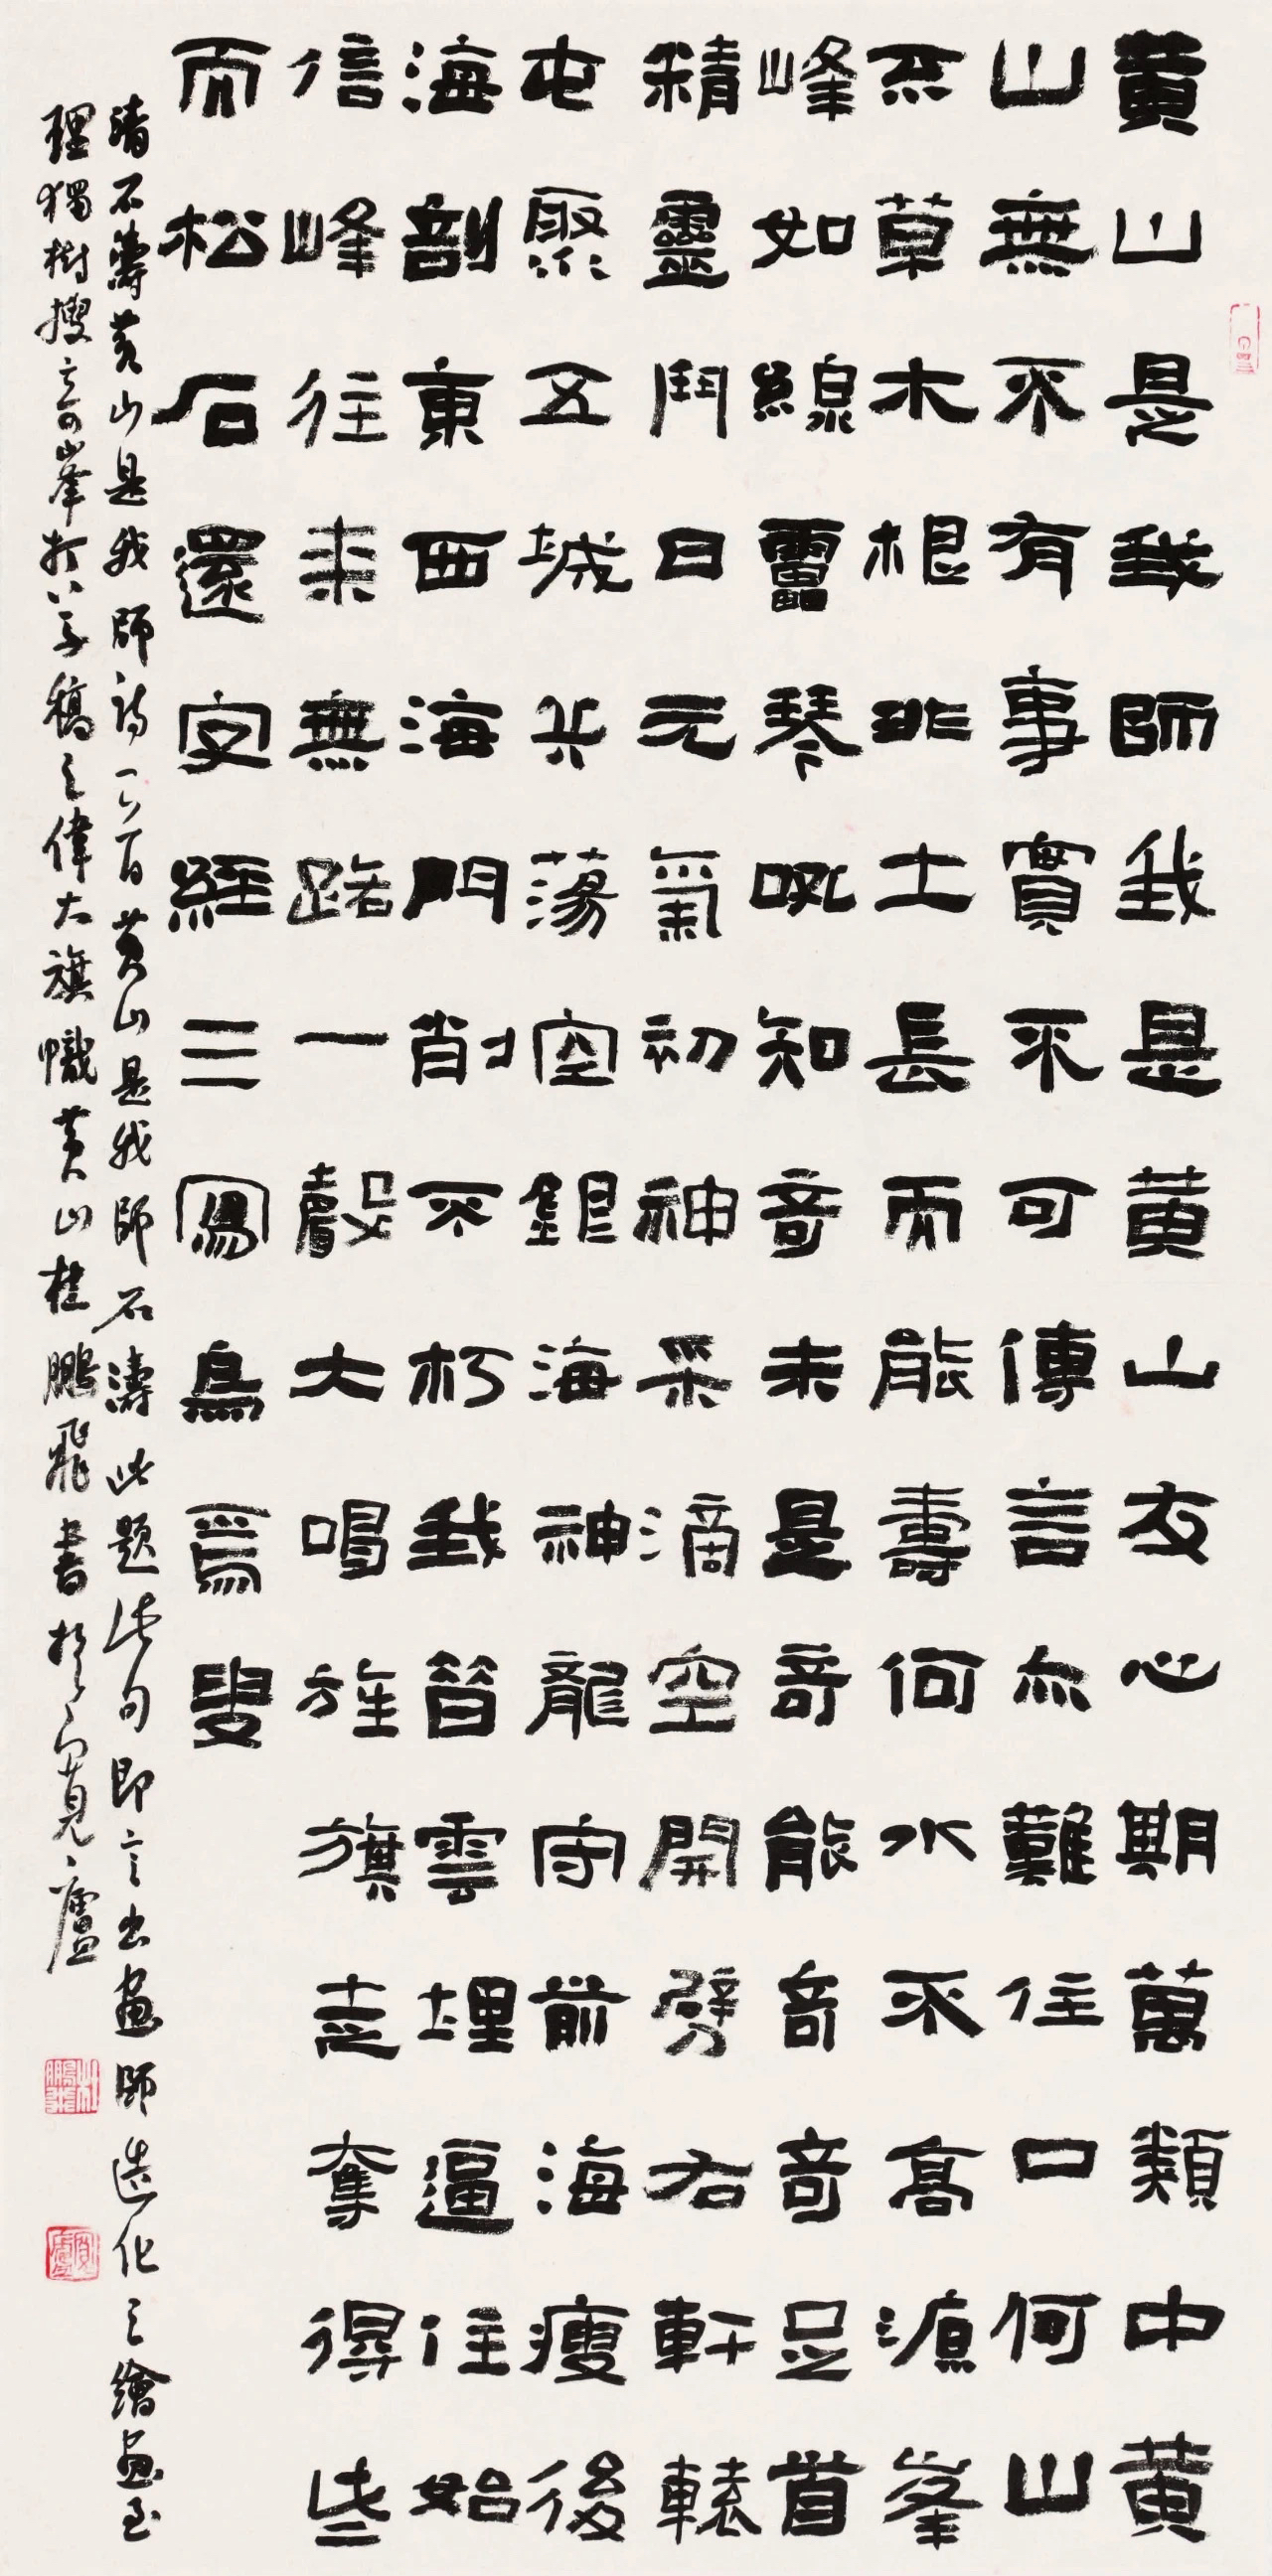 黄山是我師我是黄山友心期萬類中黄
山無不有事實不可傳言亦難住口何山
不草木根非土長而能壽何水不高源峯
峰如線雷琴吼知奇未是奇能奇奇足首
精靈鬥日元氣初神采滴空開劈右軒轅
屯聚五城兵蕩空銀海神龍守前海瘦後
海剖東西海門削不朽我昔雲埋逼住始
信峰往來無路一聲大唱旌旗走奪得些
而松石還字經三寫鳥焉叟
清石濤黄山是我師詩一首黄山是我師石濤此題此句即言出畫師造化之繪畫至
理獨樹搜奇峯打草稿之偉大旗幟黄山杜鵬飛書於寬廬